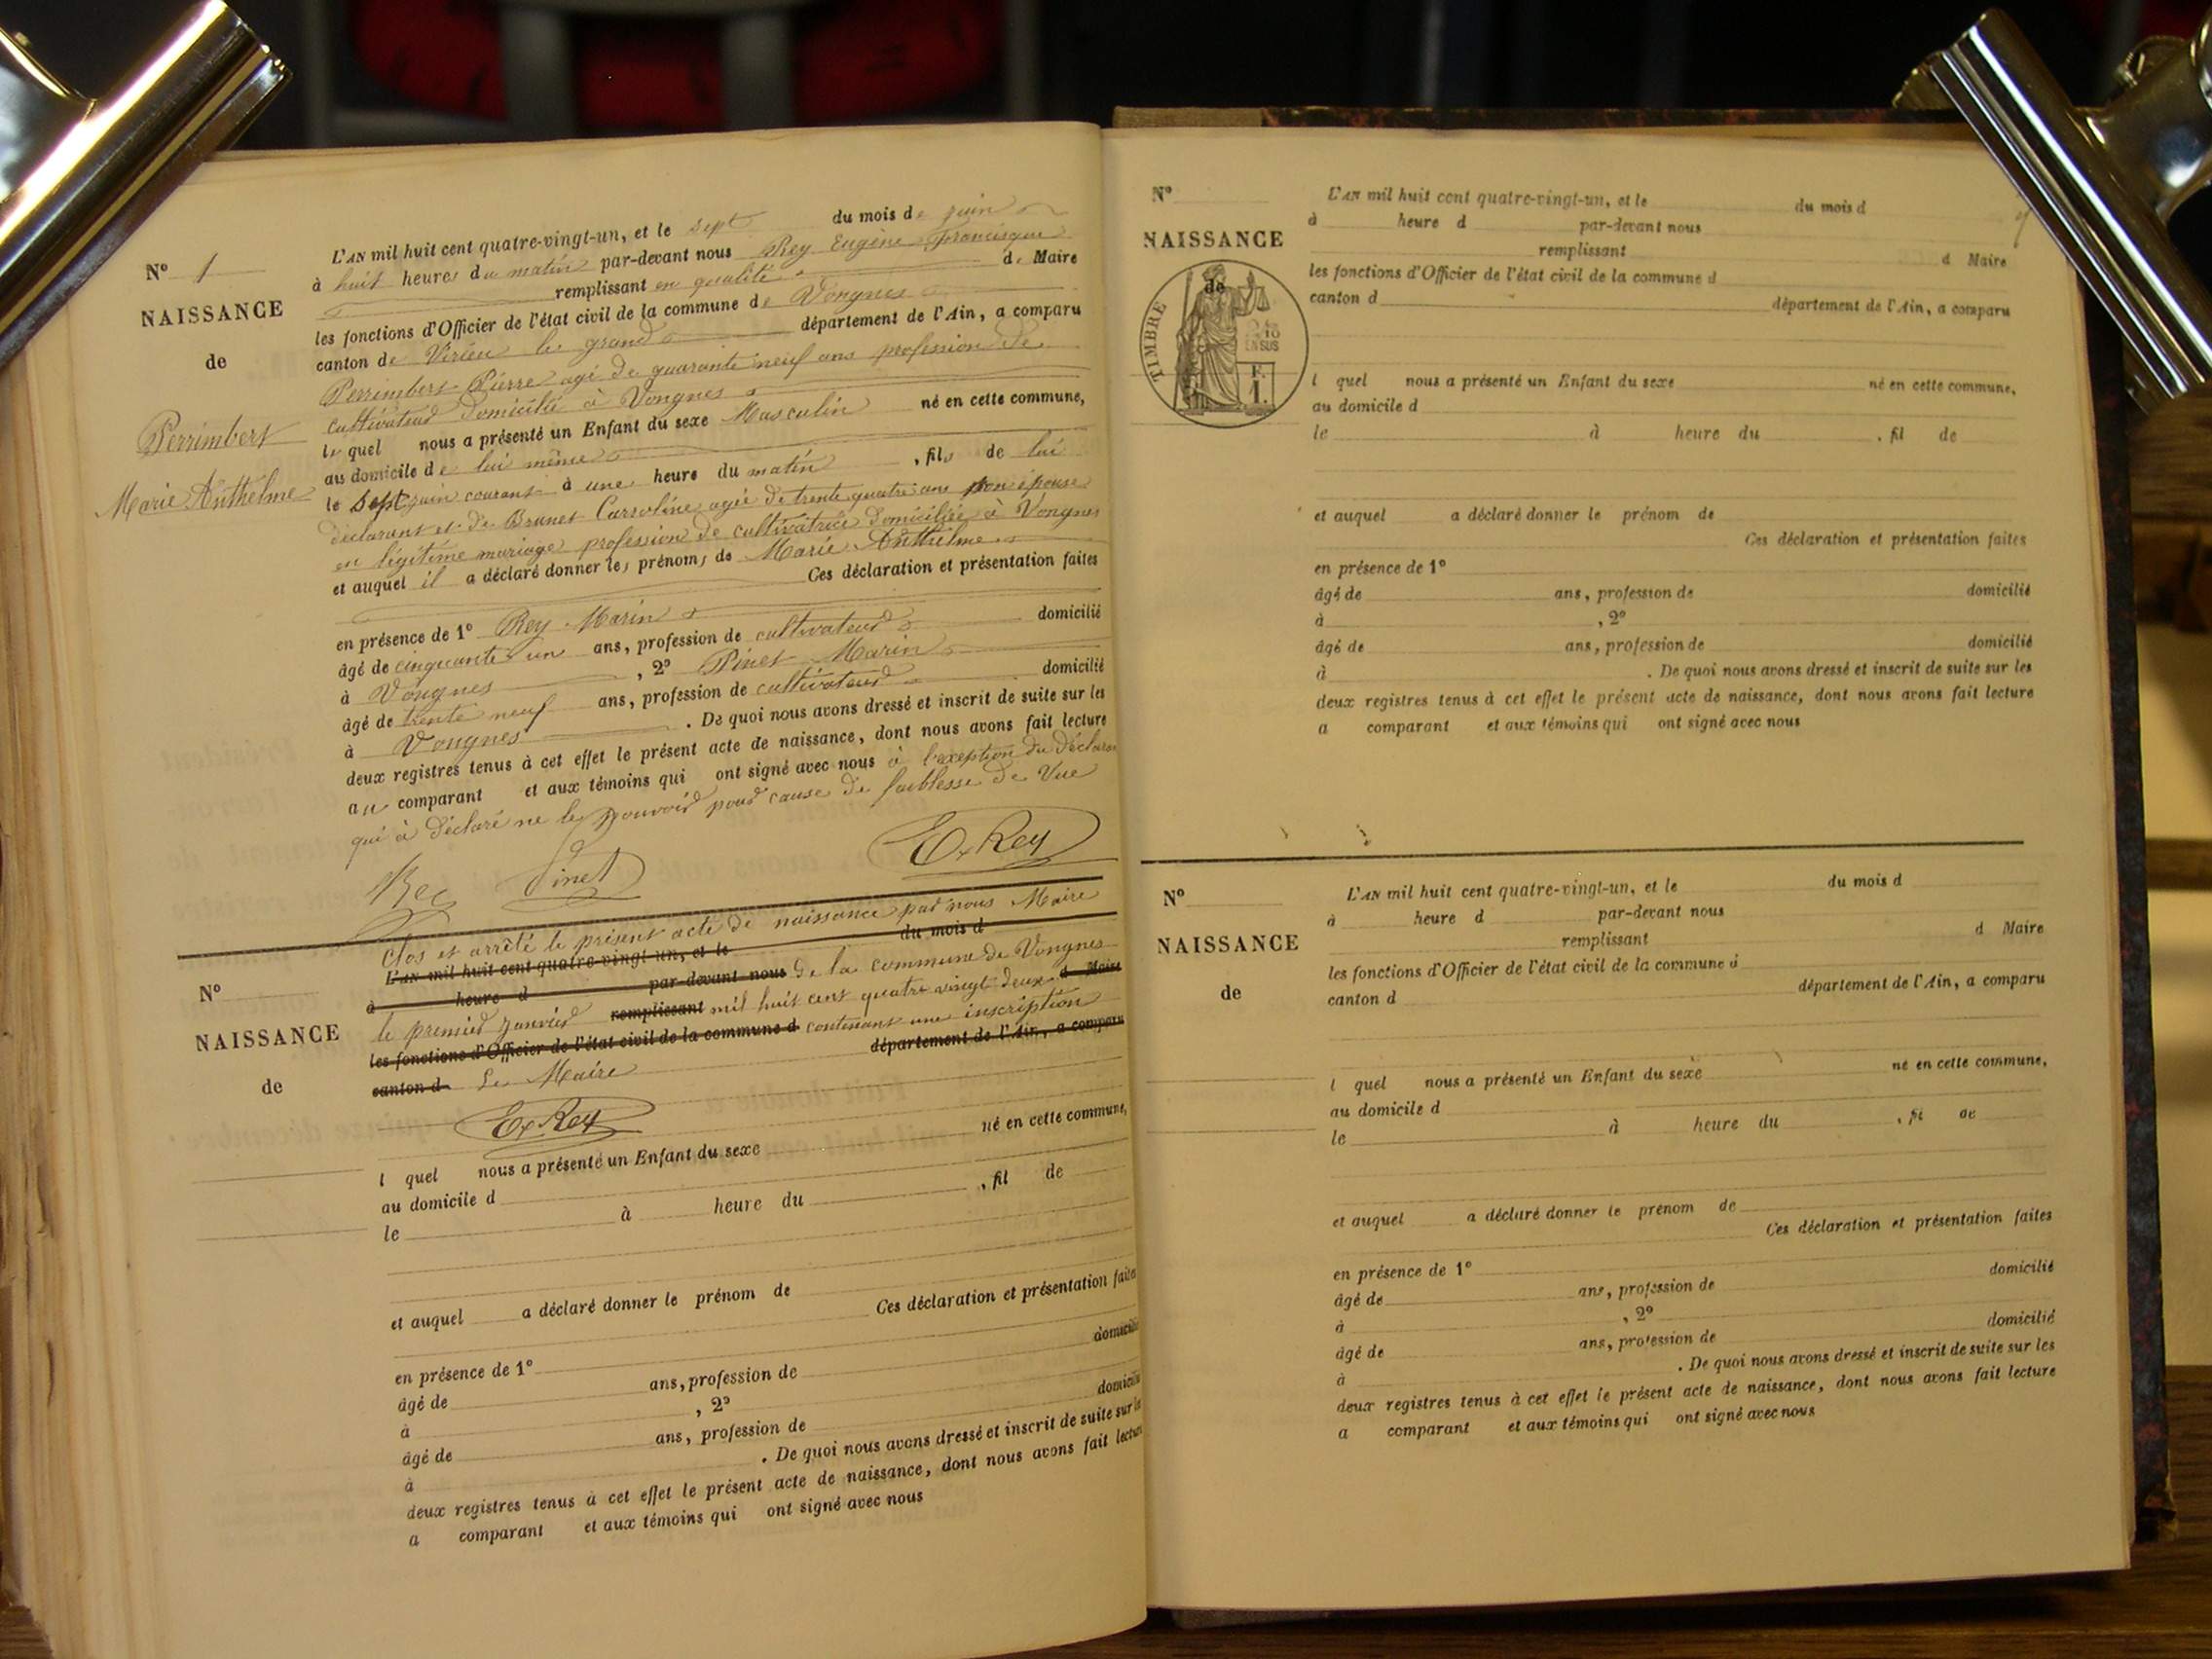 N° 1
NAISSANCE
de
Perrimbert
Marie Anthelme
L'AN mil huit cent quatre-vingt-un, et le sept du mois de juin
à huit heures du matin par-devant nous Rey Eugène Francisque
remplissant en qualité de Maire
les fonctions d'Officier de l'état civil de la commune de Vongnes
canton de Virieu le grand département de l'Ain, a comparu
Perrimbert Pierre agé de quarante neuf ans profession de
cultivateur domicilié à Vongnes
le quel nous a présenté un Enfant du sexe Masculin né en cette commune,
au domicile de lui même
le Sept juin courant à une heure du matin, fils de lui
déclarant et de Brunet Carroline agée de trente quatre ans son épouse
en légitime mariage profession de cultivatrice domiciliée à Vongnes
et auquel il a déclaré donner les prénoms de Marie Anthelme
Ces déclaration et présentation faites
en présence de 1° Rey Marin
âgé de cinquante un ans, profession de cultivateur domicilié
à Vongnes, 2° Pinet Marin
âgé de trente neuf ans, profession de cultivateur domicilié
à Vongnes. De quoi nous avons dressé et inscrit de suite sur les
deux registres tenus à cet effet le présent acte de naissance, dont nous avons fait lecture
au comparant et aux témoins qui ont signé avec nous à l'exeption du déclarant
qui à déclaré ne le pouvoir pour cause de faiblesse de Vue
Rey Pinet Ex Rey
N°
NAISSANCE
de
Clos et arrêté le présent acte de naissance par nous Maire
L'AN mil huit cent quatre-vingt-un, et le du mois d
à heure d par-devant nous de la commune de Vongnes
le premier Janvier remplissant mil huit cent quatre vingt deux d Maire
les fonctions d'Officier de l'état civil de la commune d contenant une inscription
canton d Le Maire département de l'Ain, a comparu
Ex Rey
l quel nous a présenté un Enfant du sexe né en cette commune,
au domicile d
le à heure du , fil de
et auquel a déclaré donner le prénom de
Ces déclaration et présentation faites
en présence de 1°
âgé de ans, profession de domicilié
à , 2°
âgé de ans, profession de domicilié
à . De quoi nous avons dressé et inscrit de suite sur les
deux registres tenus à cet effet le présent acte de naissance, dont nous avons fait lecture
a comparant et aux témoins qui ont signé avec nous
N°
NAISSANCE
de
TIMBRE
F.
1.
L'AN mil huit cent quatre-vingt-un, et le du mois d
à heure d par-devant nous
remplissant d Maire
les fonctions d'Officier de l'état civil de la commune d
canton d département de l'Ain, a comparu
l quel nous a présenté un Enfant du sexe né en cette commune,
au domicile d
le à heure du , fil de
et auquel a déclaré donner le prénom de
Ces déclaration et présentation faites
en présence de 1°
âgé de ans, profession de domicilié
à , 2°
âgé de ans, profession de domicilié
à . De quoi nous avons dressé et inscrit de suite sur les
deux registres tenus à cet effet le présent acte de naissance, dont nous avons fait lecture
a comparant et aux témoins qui ont signé avec nous
N°
NAISSANCE
de
L'AN mil huit cent quatre-vingt-un, et le du mois d
à heure d par-devant nous
remplissant d Maire
les fonctions d'Officier de l'état civil de la commune d
canton d département de l'Ain, a comparu
l quel nous a présenté un Enfant du sexe né en cette commune,
au domicile d
le à heure du , fil de
et auquel a déclaré donner le prénom de
Ces déclaration et présentation faites
en présence de 1°
âgé de ans, profession de domicilié
à , 2°
âgé de ans, profession de domicilié
à . De quoi nous avons dressé et inscrit de suite sur les
deux registres tenus à cet effet le présent acte de naissance, dont nous avons fait lecture
a comparant et aux témoins qui ont signé avec nous